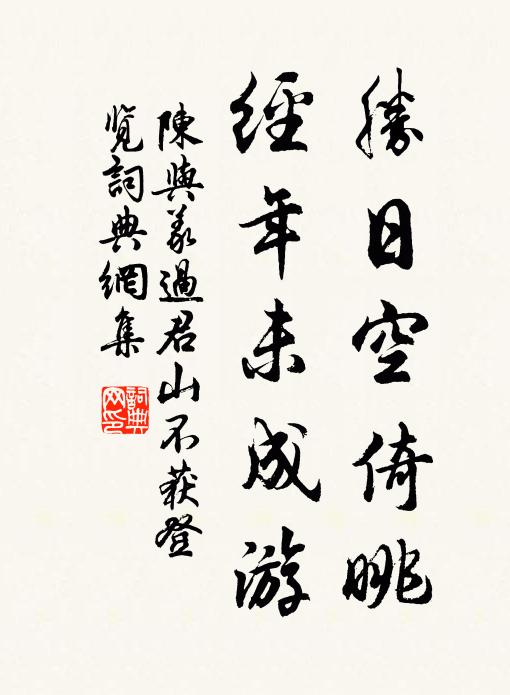 勝日空倚眺
經年未成游
陳與義過君山不获登
览詞典網集
詞典网印